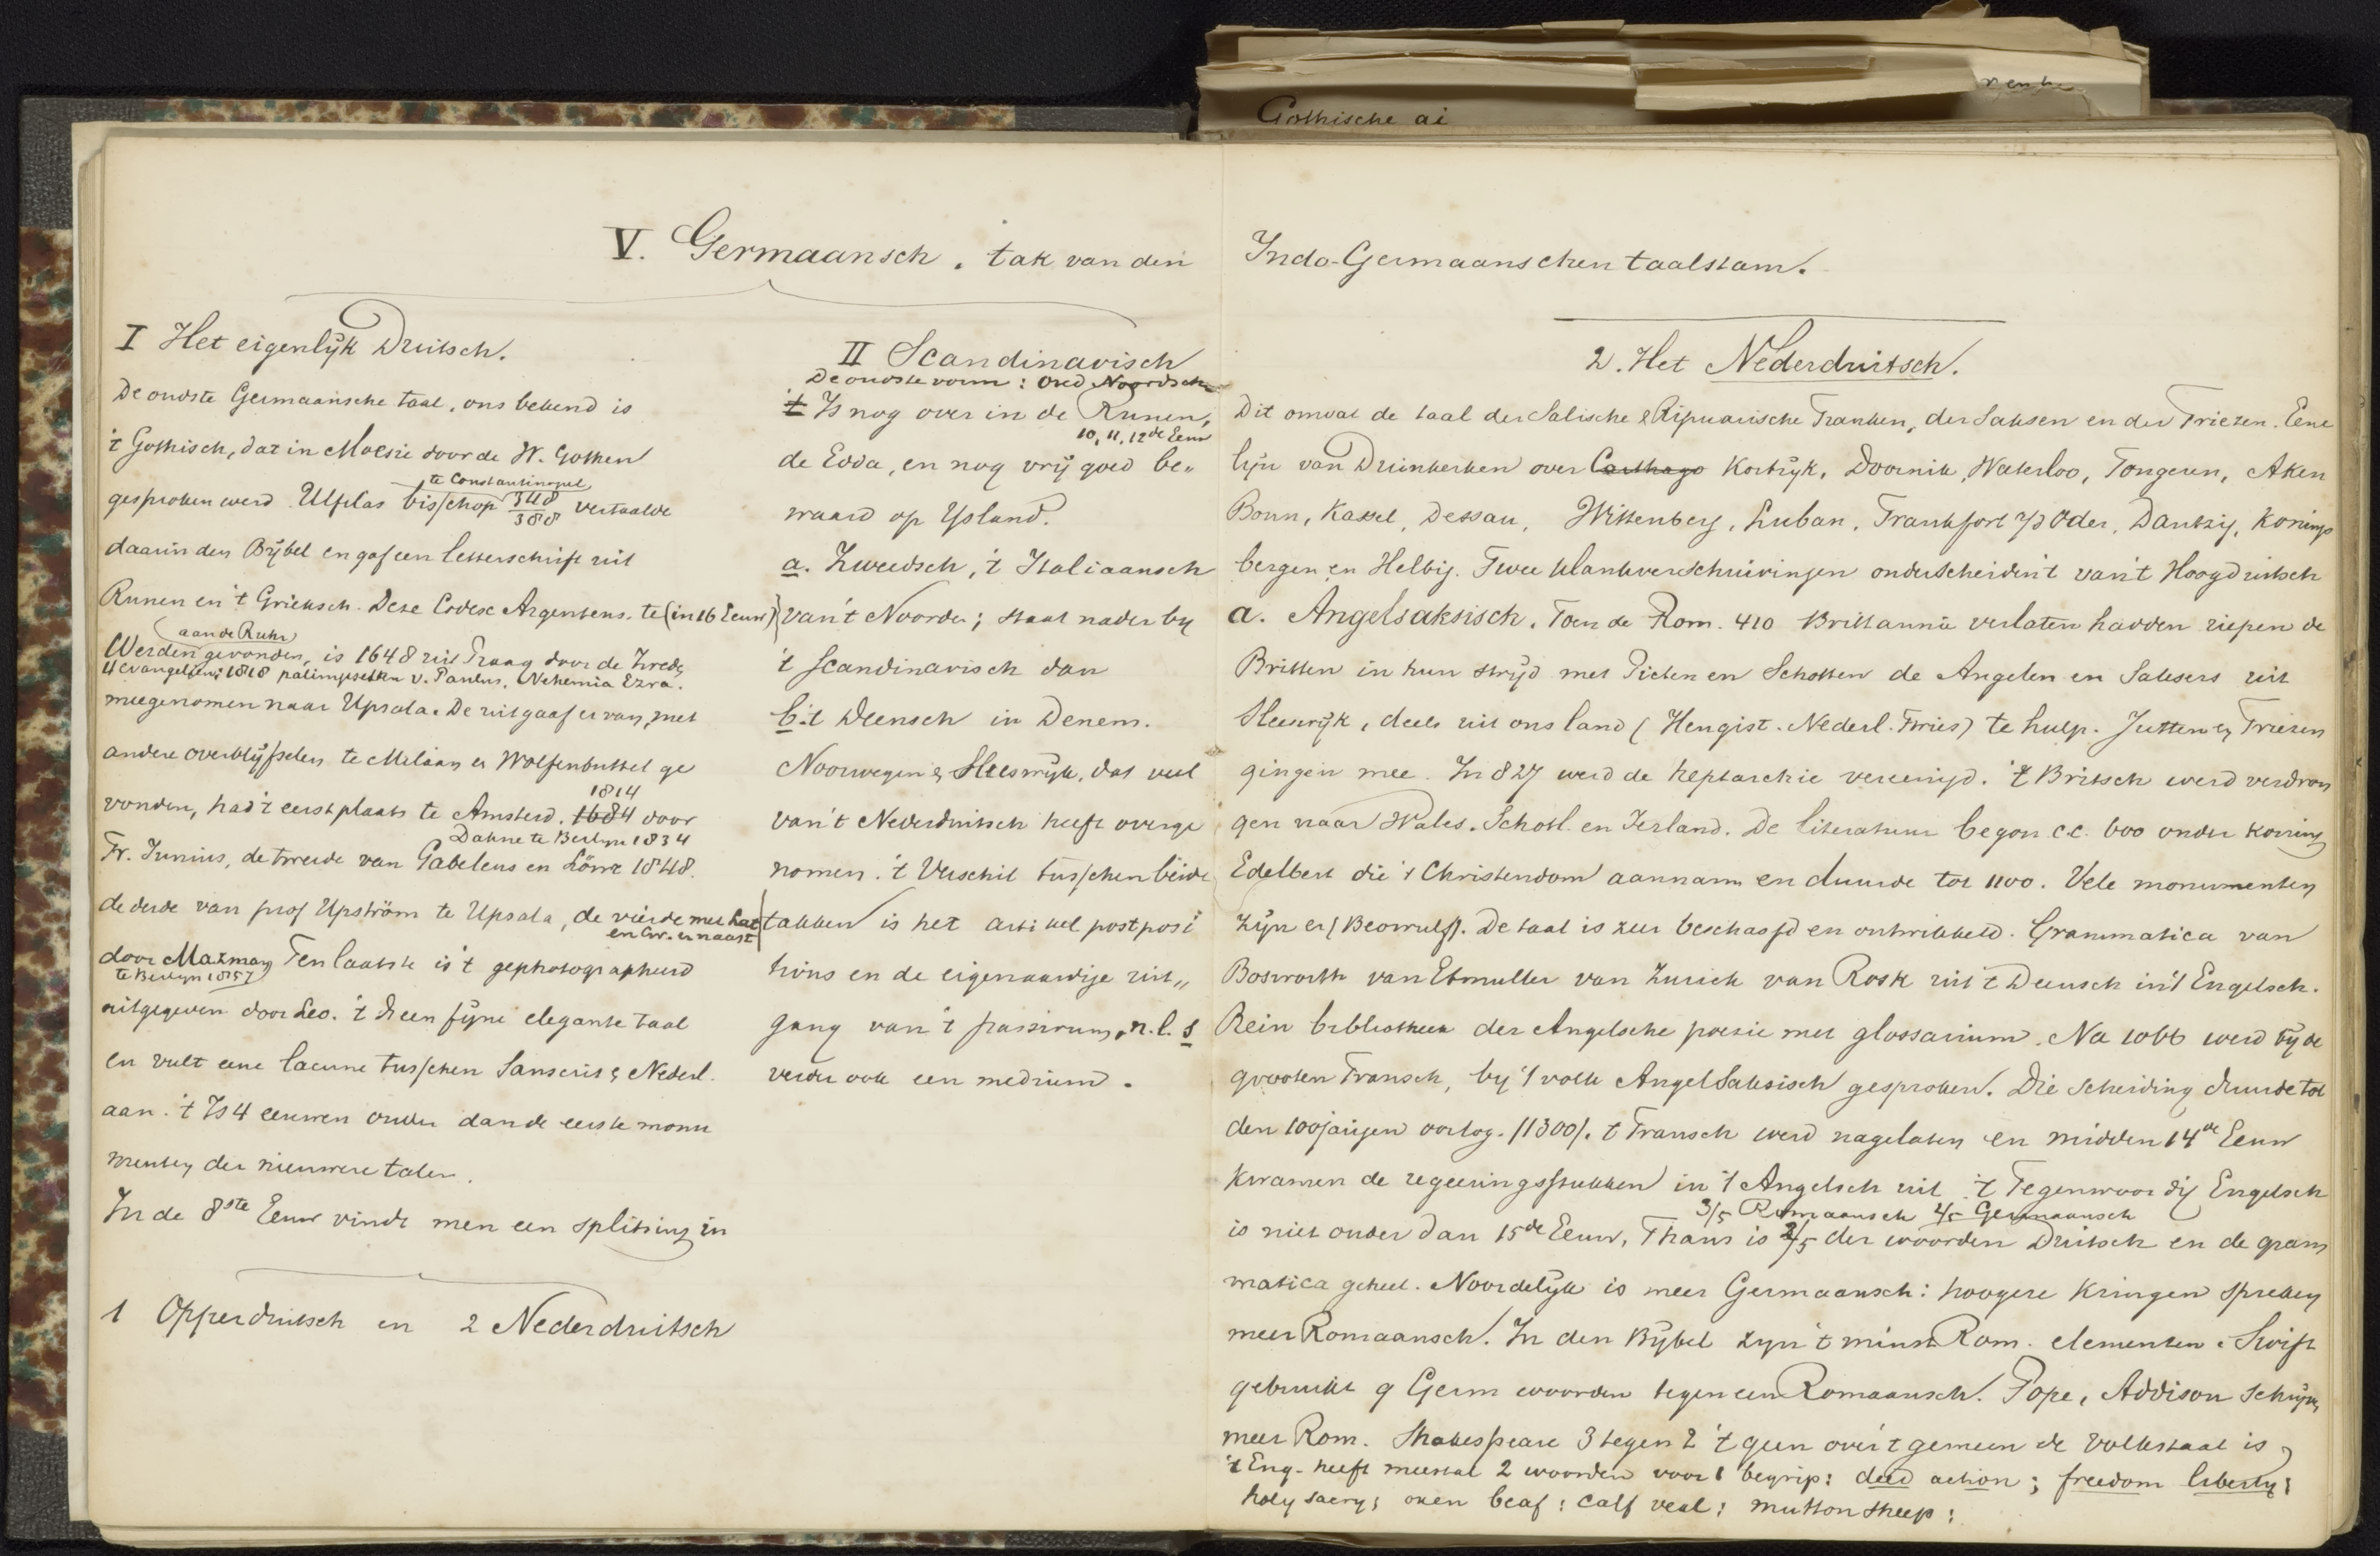 Gothische ai
V. Germaansch, tak van den Indo-Germaanschen taalstam.
I Het eigenlijk Duitsch.
De oudste Germaansche taal, ons bekend is
't Gothisch, dat in Moesie door de W. Gothen
te Constantinopel
gesproken werd. Ulfilas bisschop 348/388 vertaalde
daarin den Bybel en gaf een letterschrift uit
Runen en 't Grieksch. Deze Codex Argenteus. te (in 16 Eeuw)
aan de Ruhr
Werden gevonden, is 1648 uit Praag door de Zwed.
4 evangelien; 1818 palimpsesten v. Paulus, Nehemia Ezra.
meegenomen naar Upsala. De uitgaaf er van, met
andere overblijfselen te Milaan en Wolfenbuttel ge
1814
vonden, had 't eerst plaats te Amsterd. 1684 door
Dahne te Berlyn 1834
Fr. Junius, de tweede van Gabelens en Löwe 1848.
de derde van prof Upström te Upsala, de vierde met Lat
en Gr. er naast
door Maxman Ten laatste is 't gephotographeerd
te Berlyn 1857
uitgegeven door Leo. 't Is een fijne elegante taal
en vult eene lacune tusschen Sanscrit & Nederl.
aan. 't Is 4 eeuwen ouder dan de eerste monu
menten der nieuwere talen.
In de 8ste Eeuw vindt men een splitsing in
1 Opperduitsch en 2 Nederduitsch
II Scandinavisch
De oudste vorm: Oud Noordsch
't Is nog over in de Runen,
10, 11, 12de Eeuw
de Edda, en nog vrij goed be„
waard op Ysland.
a. Zweedsch, 't Italiaansch
van 't Noorden; staat nader by
't Scandinavisch dan
b. 't Deensch in Denem.
Noorwegen & Sleeswyk, dat veel
van 't Nederduitsch heeft overge
nomen. 't Verschil tusschen beide
takken is het artikel postposi
tions en de eigenaardige uit„
gang van 't passivum, n.l. s
verder ook een medium.
2. Het Nederduitsch.
Dit omvat de taal der Salische & Ripuarische Franken, der Saksen en der Friezen. Eene
lijn van Duinkerken over Carthago Kortryk, Doornik, Waterloo, Tongeren, Aken
Bonn, Kassel, Dessau, Wittenberg, Luban, Frankfort a/d Oder, Dantzig, Konings
bergen en Helbig. Twee klankverschuivingen onderscheiden 't van 't Hoogduitsch
a. Angelsaksisch. Toen de Rom. 410 Brittannie verlaten hadden riepen de
Britten in hun stryd met Picten en Schotten de Angelen en Saksers uit
Sleeswyk, deels uit ons land (Hengist. Nederl. Fries) te hulp. Jutten en Friezen
gingen mee. In 827 werd de heptarchie vereenigd. 't Britsch werd verdron
gen naar Wales, Schotl. en Ierland. De literatuur begon c.c. 600 onder koning
Edelbert die 't Christendom aannam en duurde tot 1100. Vele monumenten
zyn er (Beowulf). De taal is zeer beschaafd en ontwikkeld. Grammatica van
Bosworth van Etmuller van Zurich van Rask uit 't Deensch in 't Engelsch.
Rein bibliotheek der Angelsche poezie met glossarium. Na 1066 werd by de
grooten Fransch, by 't volk AngelSaksisch gesproken. Die scheiding duurde tot
den 100jarigen oorlog. (1300). 't Fransch werd nagelaten en midden 14de Eeuw
kwamen de regeeringsstukken in 't Angelsch uit. 't Tegenwoordig Engelsch
3/5 Romaansch 2/5 Germaansch
is niet ouder dan 15de Eeuw. Thans is 2/5 der woorden Duitsch en de gram
matica geheel. Noordelyk is meer Germaansch: hoogere kringen spreken
meer Romaansch. In den Bybel zyn 't minst Rom. elementen. Swift
gebruikt 9 Germ woorden tegen een Romaansch. Pope, Addison schryven
meer Rom. Shakespeare 3 tegen 2 't geen over 't gemeen de volkstaal is
't Eng- heeft meestal 2 woorden voor 1 begrip: deed action; freedom liberty;
holy sacry; oxen beaf; calf veal; mutton sheep;